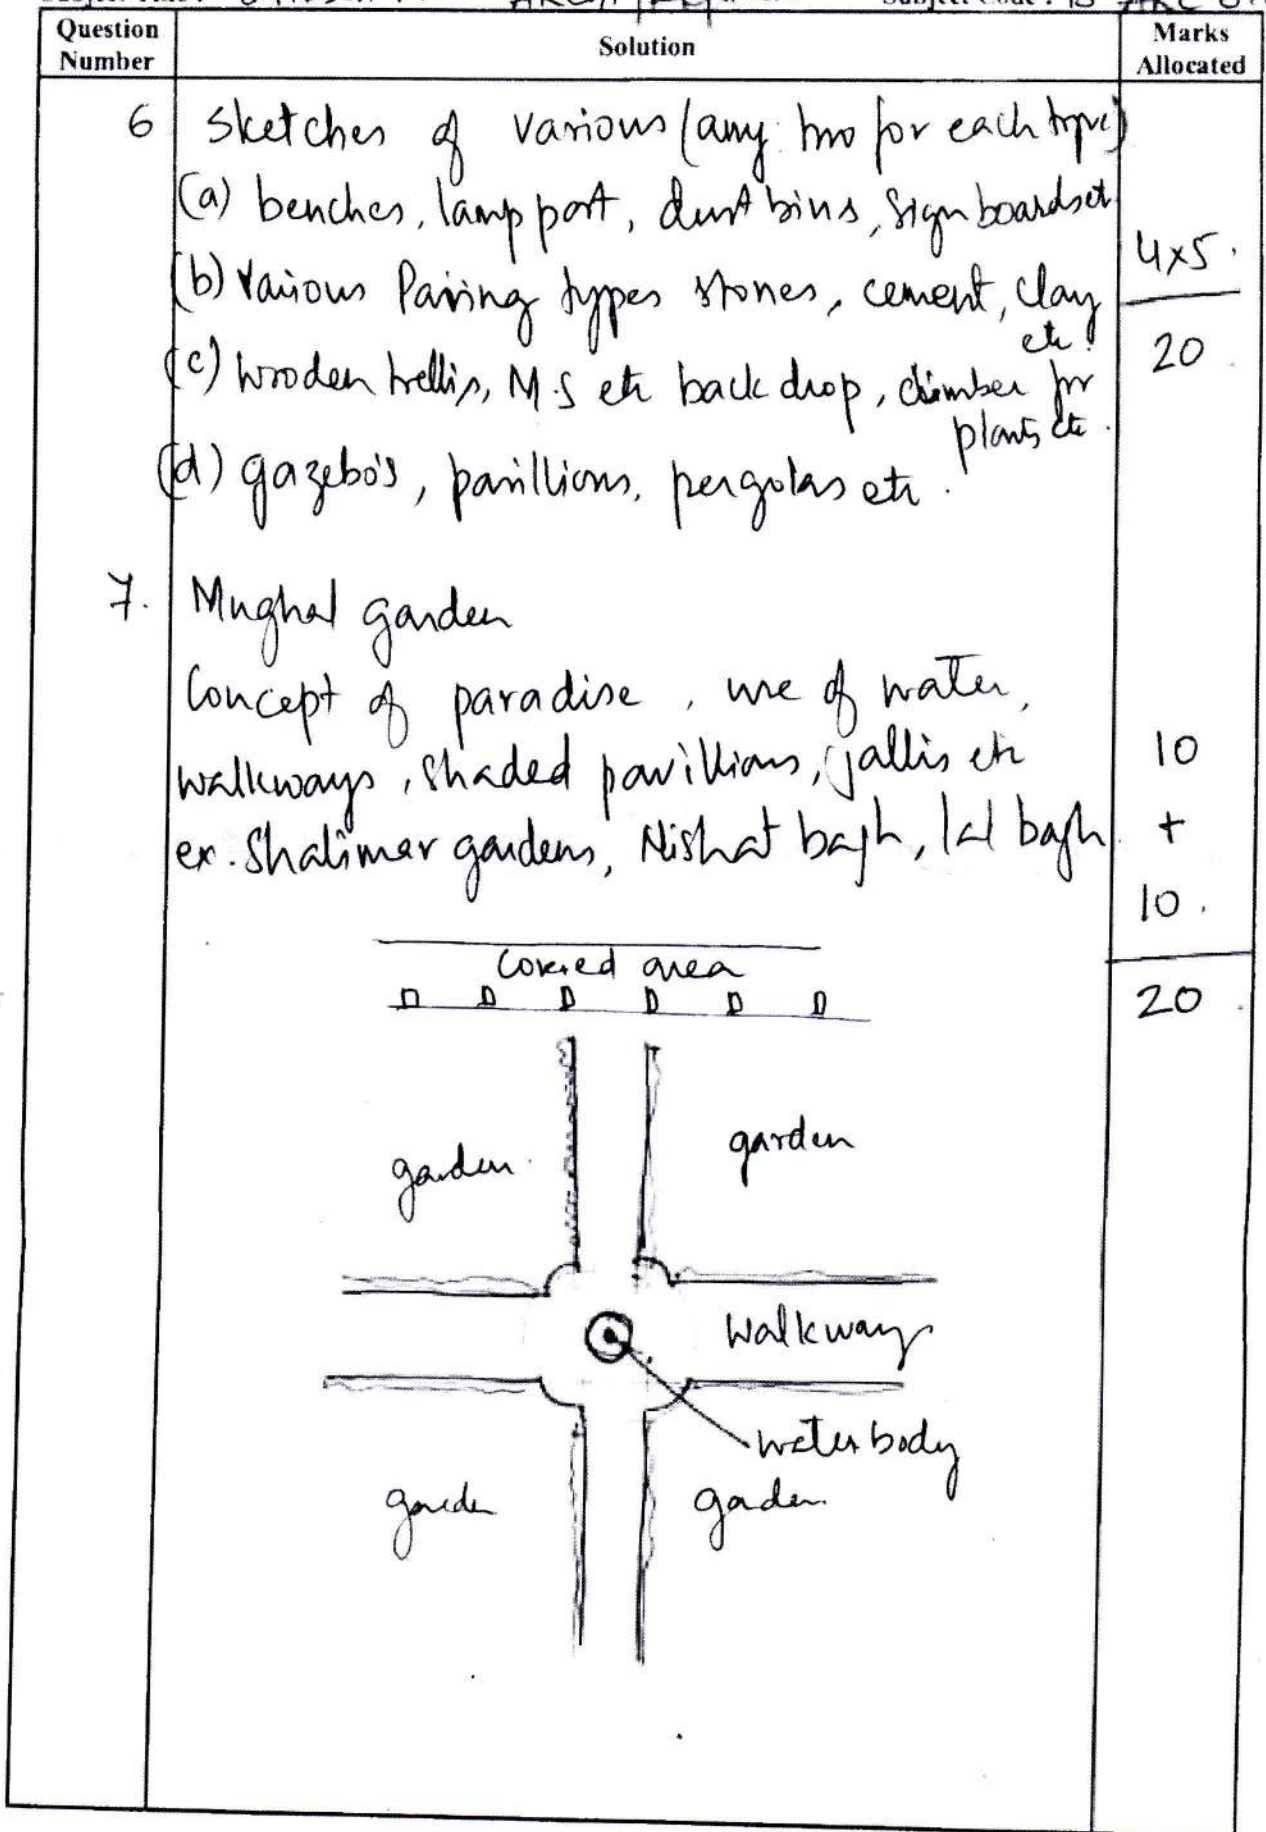 Question Number
Solution
Marks Allocated
6
Sketches of various (any two for each type)
(a) benches, lamp post, dust bins, Sign boards et
4x5.
(b) Various Paving types stones, cement, clay
etc.
20
(c) wooden trellis, M.S etc back drop, climber for
plants etc.
(d) gazebo's, pavillions, pergolas etc.
7.
Mughal garden
Concept of paradise, use of water,
walkways, shaded pavillions, jallis etc
10
ex. Shalimar gardens, Nishat bagh, lal bagh.
+
10.
Covered area
20
garden.
garden
Walkway
water body
garden
garden.